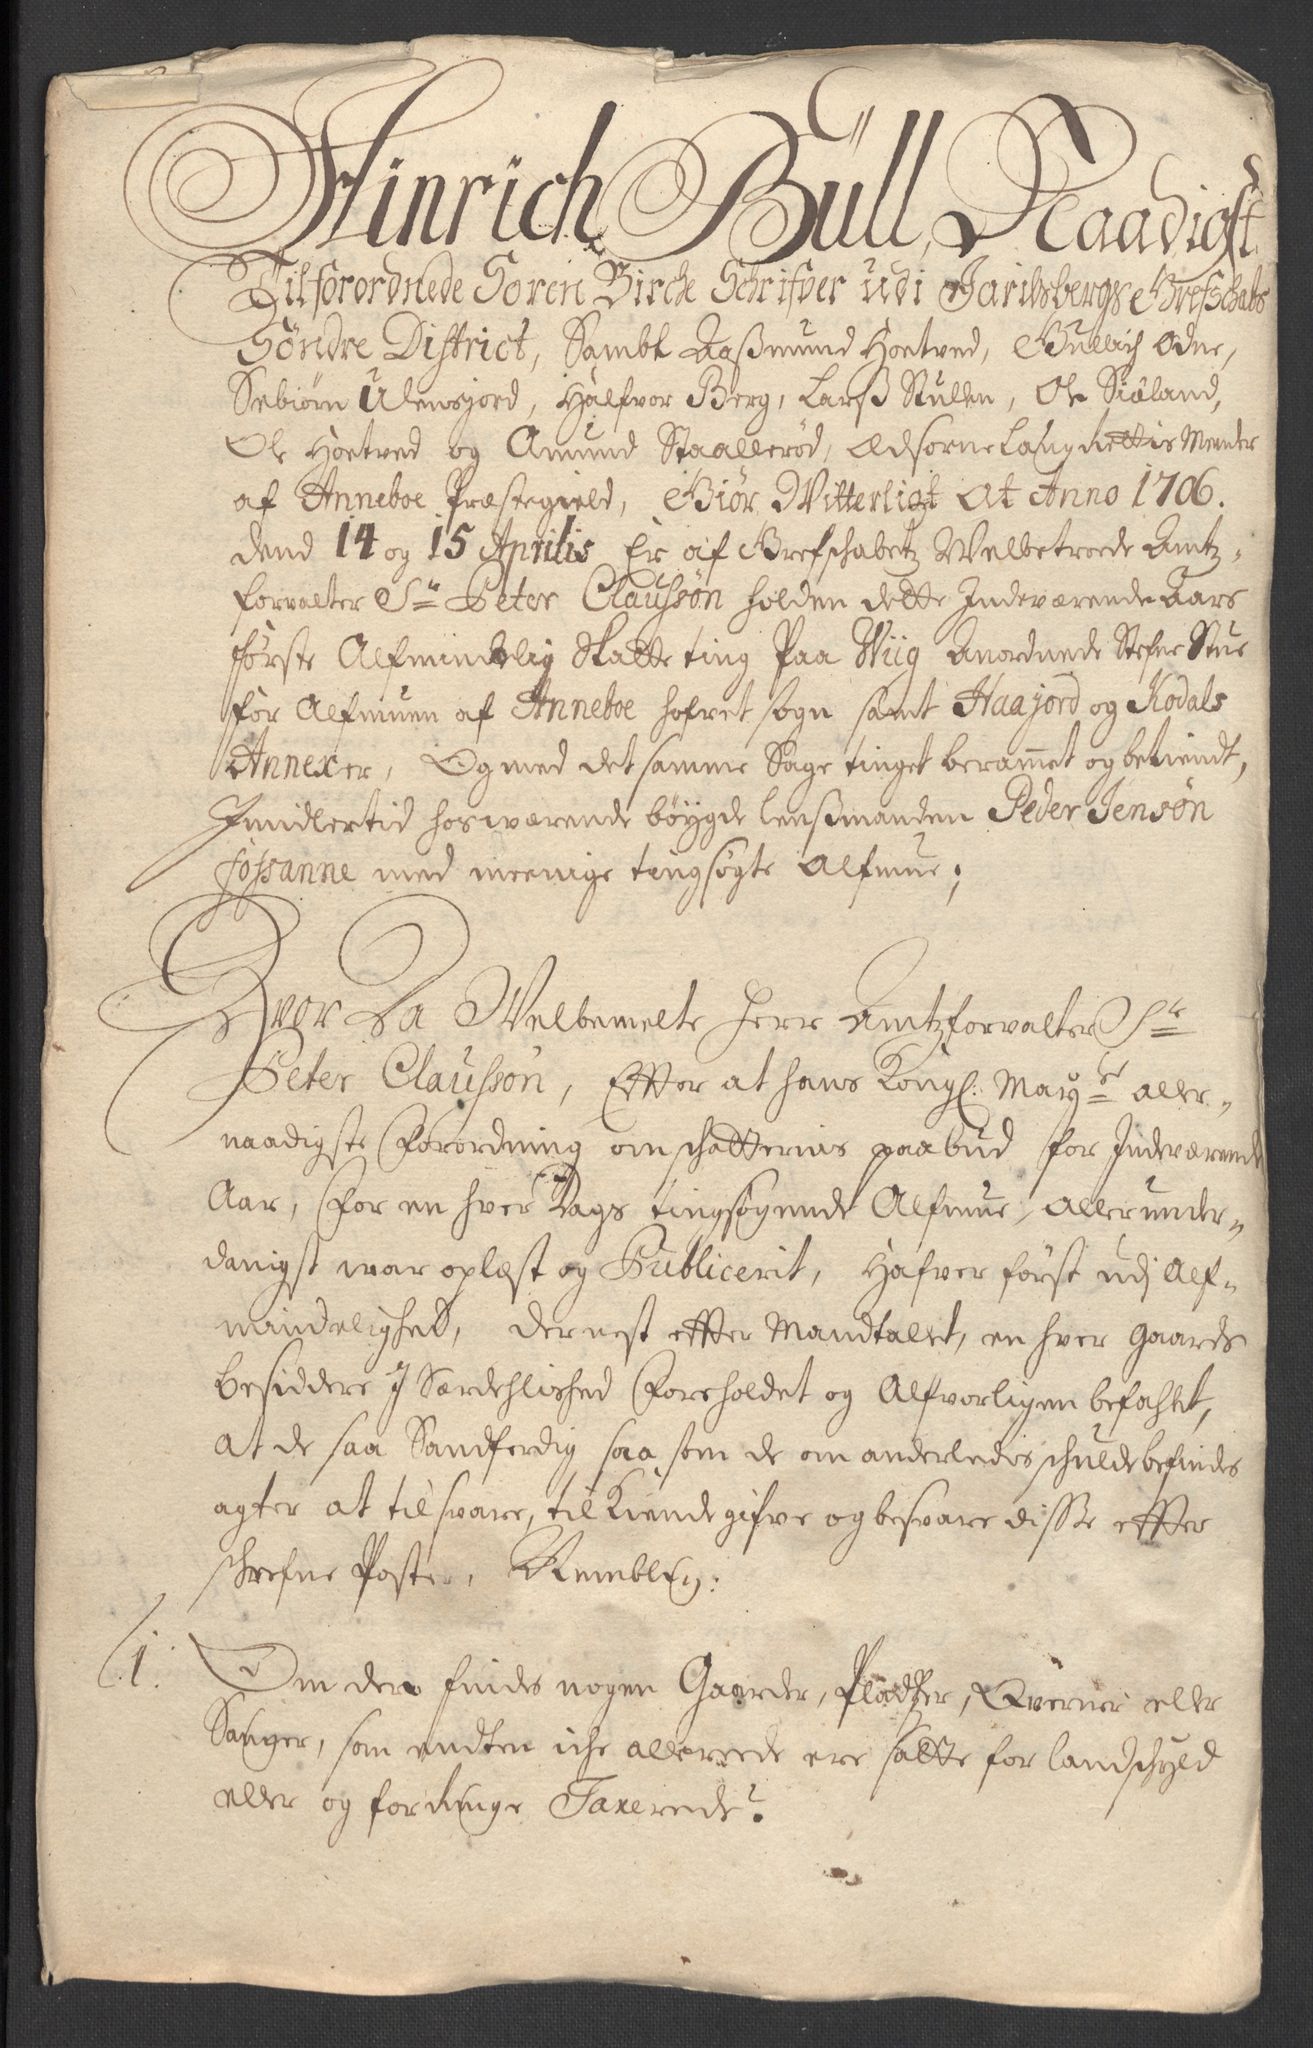 Hinrich Büll, Naadigst
Tilforordnede Soren Birche Schrifver udi Jarlsbergs Grefschabs
Søndre District, Sambt Aaßmund Hoetved, Gullich Odne,
Sebiørn Ulensjord, Halfvor Berg, Larß Stulen, Ole Siøland,
Ole Hoetved og Amund Staallerød, Edsorne Laugrettis Mender
af Anneboe Præstegield, Giør Witterligt At Anno 1706.
dend 14 og 15 Aprilis Er af Grefschabetz Welbetroede Amtz-
forvalter Sr Peter Claussøn holden dette Indeværende Aars
første Almindelig Skatte ting Paa Wiig Anordnede Stefne Stue
for Almuen af Anneboe hofvet sogn samt Haajord og Kodals
Annexer, Og med det samme Sage tinget beramet og betiendt,
Imidlertid hosværende bøygde lensmanden Peder Jensøn
Fossanne med meenige tingsøgte Almue;
Hvor Da Welbemelte Herr Amtzforvalter Sr
Peter Claussøn, Efter at hans Kongl. Mayts aller-
naadigste Forordning om schatternis paabud for Indeværende
Aar, For en hver Dags tingsøgende Almue, allerunder-
danigst war oplæst og Publicerit, Hafver først udj Al-
mindelighed, dernest efter Mandtallet, en hver gaards
besiddere J Særdehlished Foreholdet og Alfvorligen befahlet,
at de saa Sandferdig saa som de om anderledis schulde befindes
agter at tilsvare, tilkiende gifve og besvare disse efter
schrefne Poster, Nemblig:
1. Om der findes nogen Gaarder, Pladtzer, Qverner eller
Sauger, som endten iche allereede ere satte for landschyld
eller og forhinge Taxerede?